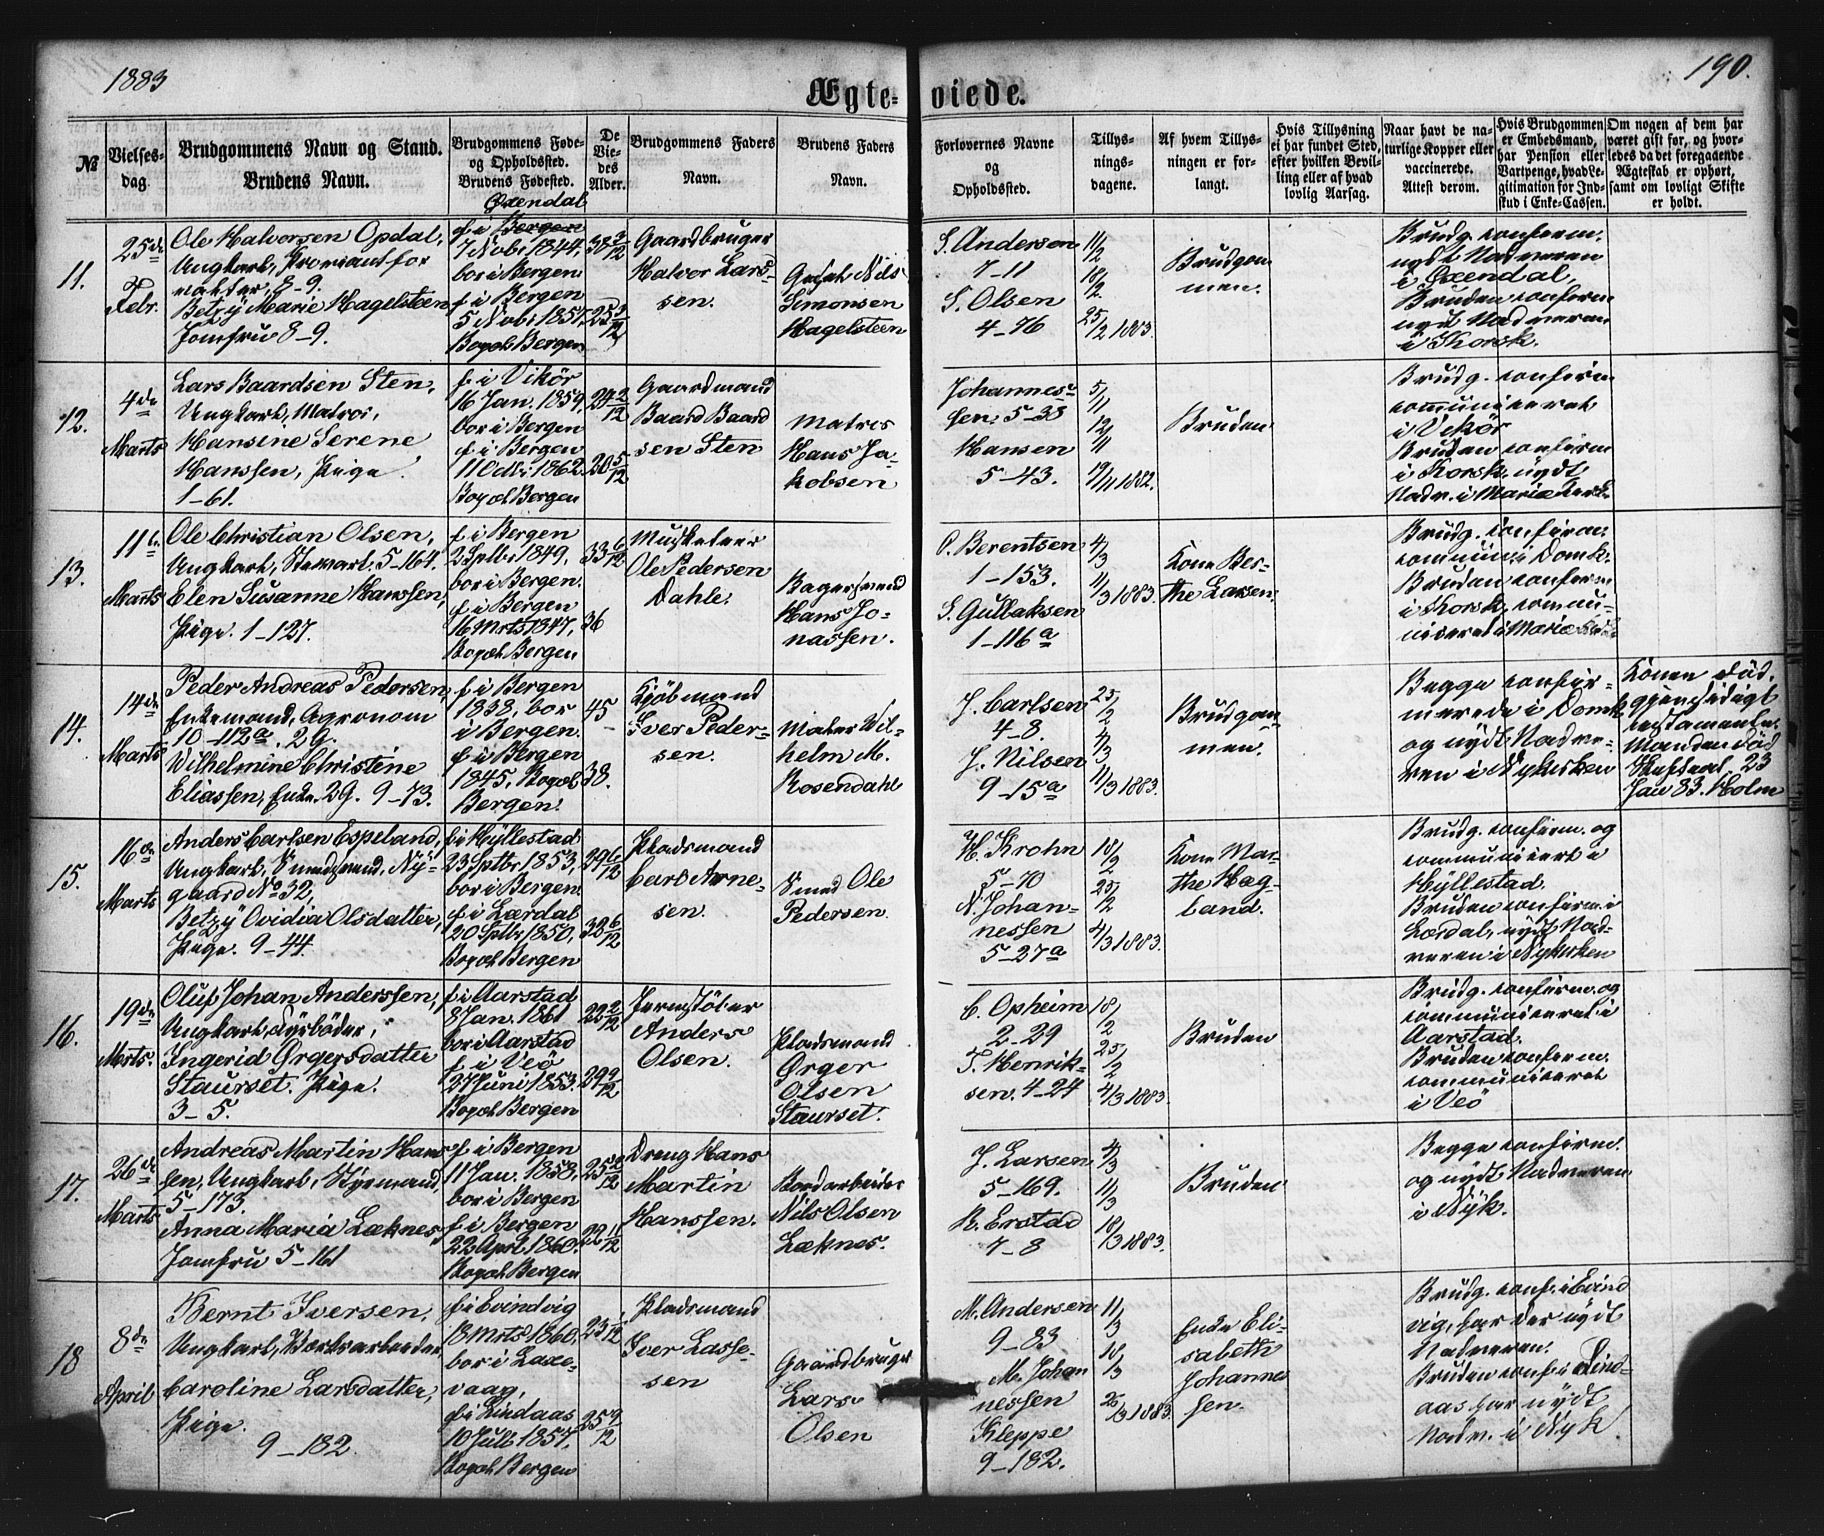 1883
190.
Ægte-viede.
№
Vielses-dag.
Brudgommens Navn og Stand.
Brudens Navn.
Brudgommens Føde-
og Opholdssted.
Brudens Fødested.
De
Vie-
des
Alder.
Brudgommens Faders
Navn.
Brudens Faders
Navn.
Forlovernes Navne
og
Opholdssted.
Tillys-
nings-
dagene.
Af hvem Tillys-
ningen er for-
langt.
Hvis Tillysning
ei har fundet Sted,
efter hvilken Bevil-
ling eller af hvad
lovlig Aarsag.
Naar havt de na-
turlige Kopper eller
vaccinerede.
Attest derom.
Hvis Brudgommen
er Embedsmand,
har Pension eller
Vartpenge, hvad Le-
gitimation for Ind-
skud i Enke-Cassen.
Om nogen af dem har
været gift før, og hvor-
ledes da det foregaaende
Ægteskab er ophørt,
samt om lovligt Skifte
er holdt.
11.
25de
Febr.
Ole Halvorsen Opdal,
Ungkarl, Proviantfor
valter, 8-9.
Betzy Marie Hagelsteen
Jomfru 8-9.
Øxendal
f. i Bergen
7 Nobr 1844,
bor i Bergen.
f. i Bergen
5 Nobr 1857,
Bopæl Bergen
38 3/12
25 3/12
Gaardbruger
Halvor Lars-
sen.
Nils
Simonsen
Hagelsteen
S. Andersen
7-11
S. Olsen
4-76
11/2
18/2
25/2 1883.
Brudgom
men.
Brudg. confirm.
nydt Nadveren
i Øxendal
Bruden confirm
nydt Nadveren
i Korsk.
12.
4de
Marts
Lars Baardsen Sten,
Ungkarl, Matros,
Hansine Serene
Hanssen, Pige
1-61.
f. i Vikör
16 Jan. 1859,
bor i Bergen
f. i Bergen
11 Octbr 1862
Bopæl Bergen
24 2/12
20 5/12
Gaardmand
Baard Baard
sen Sten
Matros
Hans Ja-
kobsen
Johannes-
sen, 5-38
Hansen
5-43.
5/11
12/11
19/11 1882.
Bruden
Brudg. confirm
communiceret
i Vikör
Bruden confirm
i Korsk. nydt
Nadv. i Mariæ Kirk.
13.
11te
Marts
Ole Christian Olsen,
Ungkarl, Stewart. 5-164.
Elen Susanne Hanssen,
Pige. 1-127.
f. i Bergen
2 Sptbr 1849,
bor i Bergen.
f. i Bergen
16 Mrts 1847,
Bopæl Bergen
33 6/12
36
Musketeer
Ole Pedersen
Dahle.
Bagersvend
Hans Jo-
nassen.
O. Berentsen
1-153.
S. Gullaksen
1-116a
4/3
11/3 1883.
Kone Ber-
the Larsen.
Brudg. confirm.
commun. i Domk.
Bruden confirm
i Korsk, commu-
niceret i Mariæ
14.
14de
Marts
Peder Andreas Pedersen,
Enkemand, Agronom
10-112a. 2 G.
Wilhelmine Christine
Eliassen, Enke. 2 G. 9-73.
f. i Bergen
1838, bor
i Bergen.
f. i Bergen
1845, Bopæl
Bergen.
45
38.
Kjöbmand
Iver Peder-
sen.
Maler Wil-
helm M.
Rosendahl
J. Carlsen
4-8.
J. Nilsen
9-15a
25/2
4/3
11/3 1883.
Brudgom
men.
Begge confir-
merede i Domk.
og nydt Nadve-
ren i Nykirken
Konen död.
gjensidigt
testamente.
Manden död
Skifteatt. 23
Jan 83. Holm
15.
16de
Marts
Anders Carlsen Espeland,
Ungkarl, Smedsvend, Ny-
gaard No 32,
Betzy Ovidia Olsdatter,
Pige. 9-44.
f. i Hyllestad
23 Sptbr 1853,
bor i Bergen.
f. i Lærdal
20 Sptbr 1850,
Bopæl Bergen
29 6/12
32 6/12
Pladsmand
Carl Arne-
sen.
Smed Ole
Pedersen
H. Krohn
5-70
N. Johan-
nessen
5-27a
18/2
25/2
4/3 1883.
Kone Mar-
the Hag-
land.
Brudg. confirm. og
communicert i
Hyllestad.
Bruden confirm. i
Lærdal, nydt Nad-
veren i Nykirken
16.
19de
Mrts.
Oluf Johan Anderssen,
Ungkarl, Fyrböder,
Ingerid Ørgersdatter
Staurset. Pige.
3-5.
f. i Aarstad
8 Jan. 1861
bor i Aarstad
f. i Veö
27 Juni 1853.
Bopæl Bergen
22 2/12
29 9/12
Jernstöber
Anders
Olsen.
Pladsmand
Ørger
Olsen
Staurset.
C. Opheim
2-29
T. Henrik-
sen. 4-24
18/2
25/2
4/3 1883.
Bruden
Brudg. confirm. og
communiceret i
Aarstad.
Bruden confirm.
communiceret
i Veö
17.
26de
Marts
Andreas Martin Hans
sen, Ungkarl, Styrmand,
5-173.
Anna Maria Læknes,
Jomfru 5-161
f. i Bergen
11 Jan. 1858,
bor i Bergen
f. i Bergen
22 April 1860.
Bopæl Bergen
25 2/12
22 11/12
Dreng Hans
Martin
Hanssen.
Bordarbeider
Nils Olsen
Læknes.
J. Larsen
5-169.
R. Erstad
7-8
4/3
11/3
18/3 1883.
Bruden
Begge confirm.
og nydt Nadveren
i Nyk.
18
8de
April
Bernt Iversen,
Ungkarl, Værksarbeider
Caroline Larsdatter,
Pige.
9-182.
f. i Evindvig
18 Mrts 1860.
bor i Laxe-
vaag,
f. i Lindaas
10 Juli 1857,
Bopæl Bergen
23 1/12
25 9/12
Pladsmand
Iver Lasse-
sen
Gaardbruger
Lars
Olsen
M. Andersen
9-83
M. Johan
nessen
Kleppe
9-182.
11/3
18/3
26/3 1883.
Enke Eli-
sabeth
Johannes
sen.
Brudg. conf. i Evind
vig, har der nydt
Nadveren.
Bruden conf. i Lind-
aas har nydt
Nadv. i Nyk.